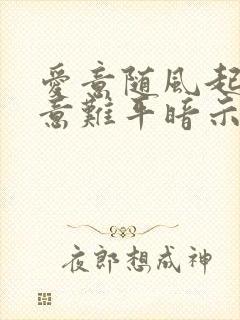 愛意随風起
意難平暗示
夜郎想成神